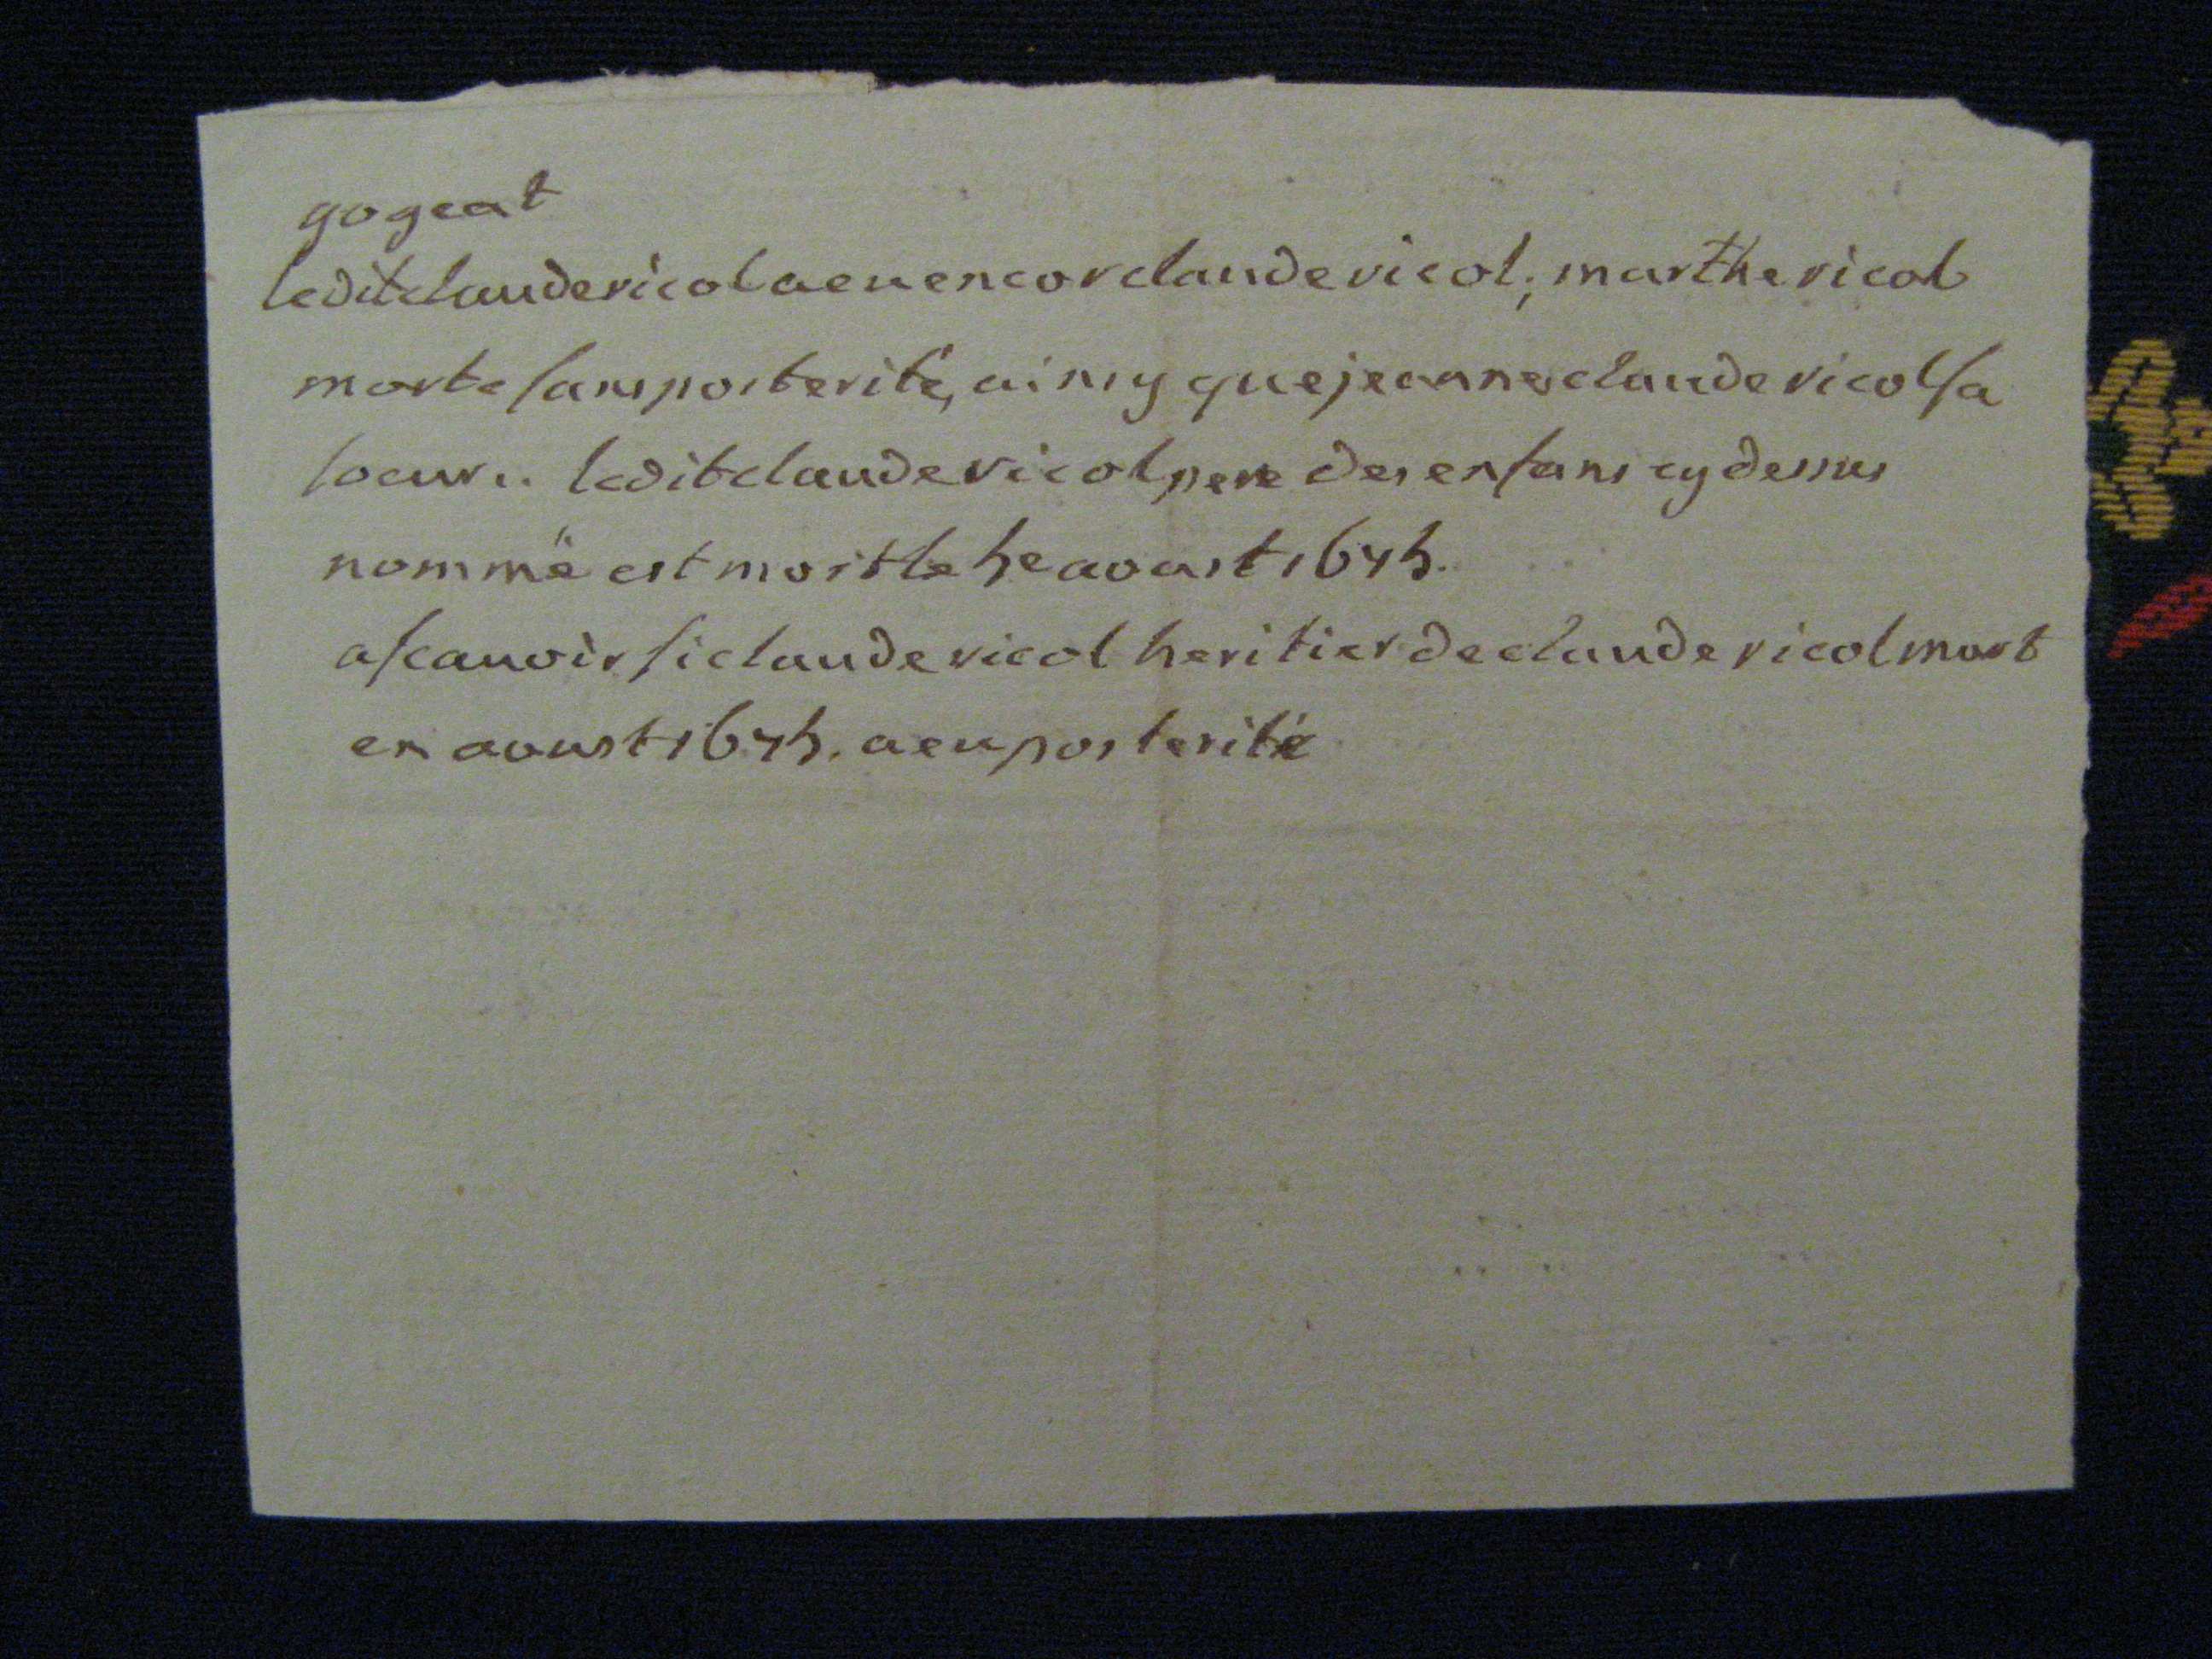 gogeat
ledit claude ricol a eu encor claude ricol; marthe ricol
morte sans posterité, ainsy que jeanne claude ricol sa
soeur.. ledit claude ricol pere des enfans cy dessus
nommé est mort le 5e aoust 1645.
a scauoir si claude ricol heritier de claude ricol mort
en aoust 1645. a eu posterité